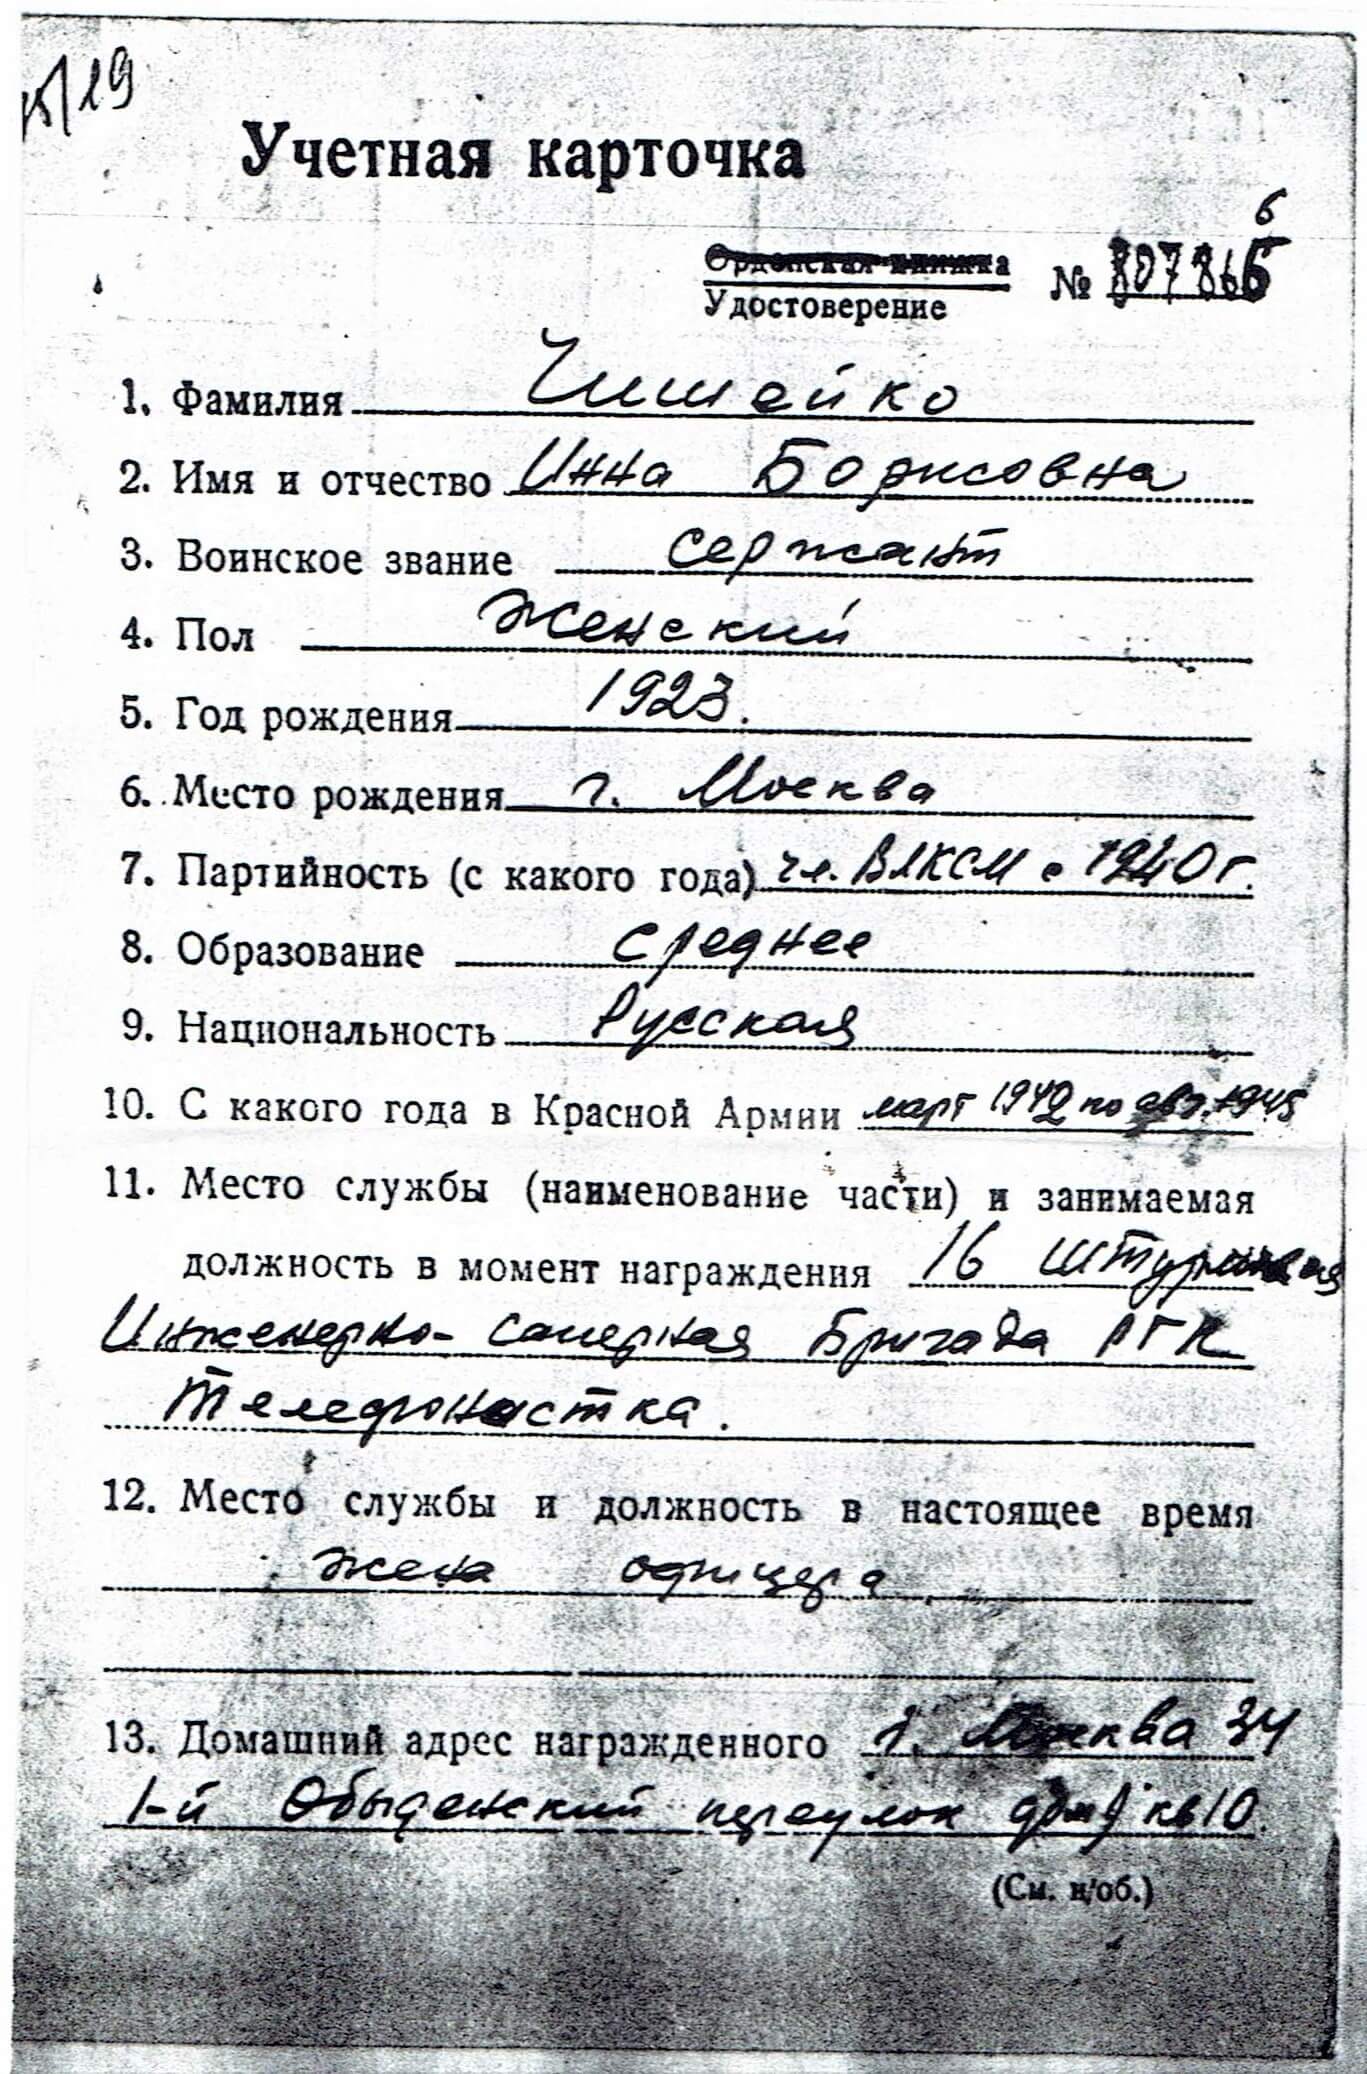 Учетная карточка
6
Орденская книжка
Удостоверение № 807866
1. Фамилия Чишейко
2. Имя и отчество Инна Борисовна
3. Воинское звание сержант
4. Пол Женский
5. Год рождения 1923.
6. Место рождения г. Москва
7. Партийность (с какого года) чл. ВЛКСМ с 1940 г.
8. Образование среднее
9. Национальность Русская
10. С какого года в Красной Армии март 1942 по авг. 1945
11. Место службы (наименование части) и занимаемая
должность в момент награждения 16 штурмовая
Инженерно-саперная Бригада РГК
Телефонистка.
12. Место службы и должность в настоящее время
жена офицера
13. Домашний адрес награжденного г. Москва 34
1-й Обыденский переулок дом кв 10.
(См. н/об.)